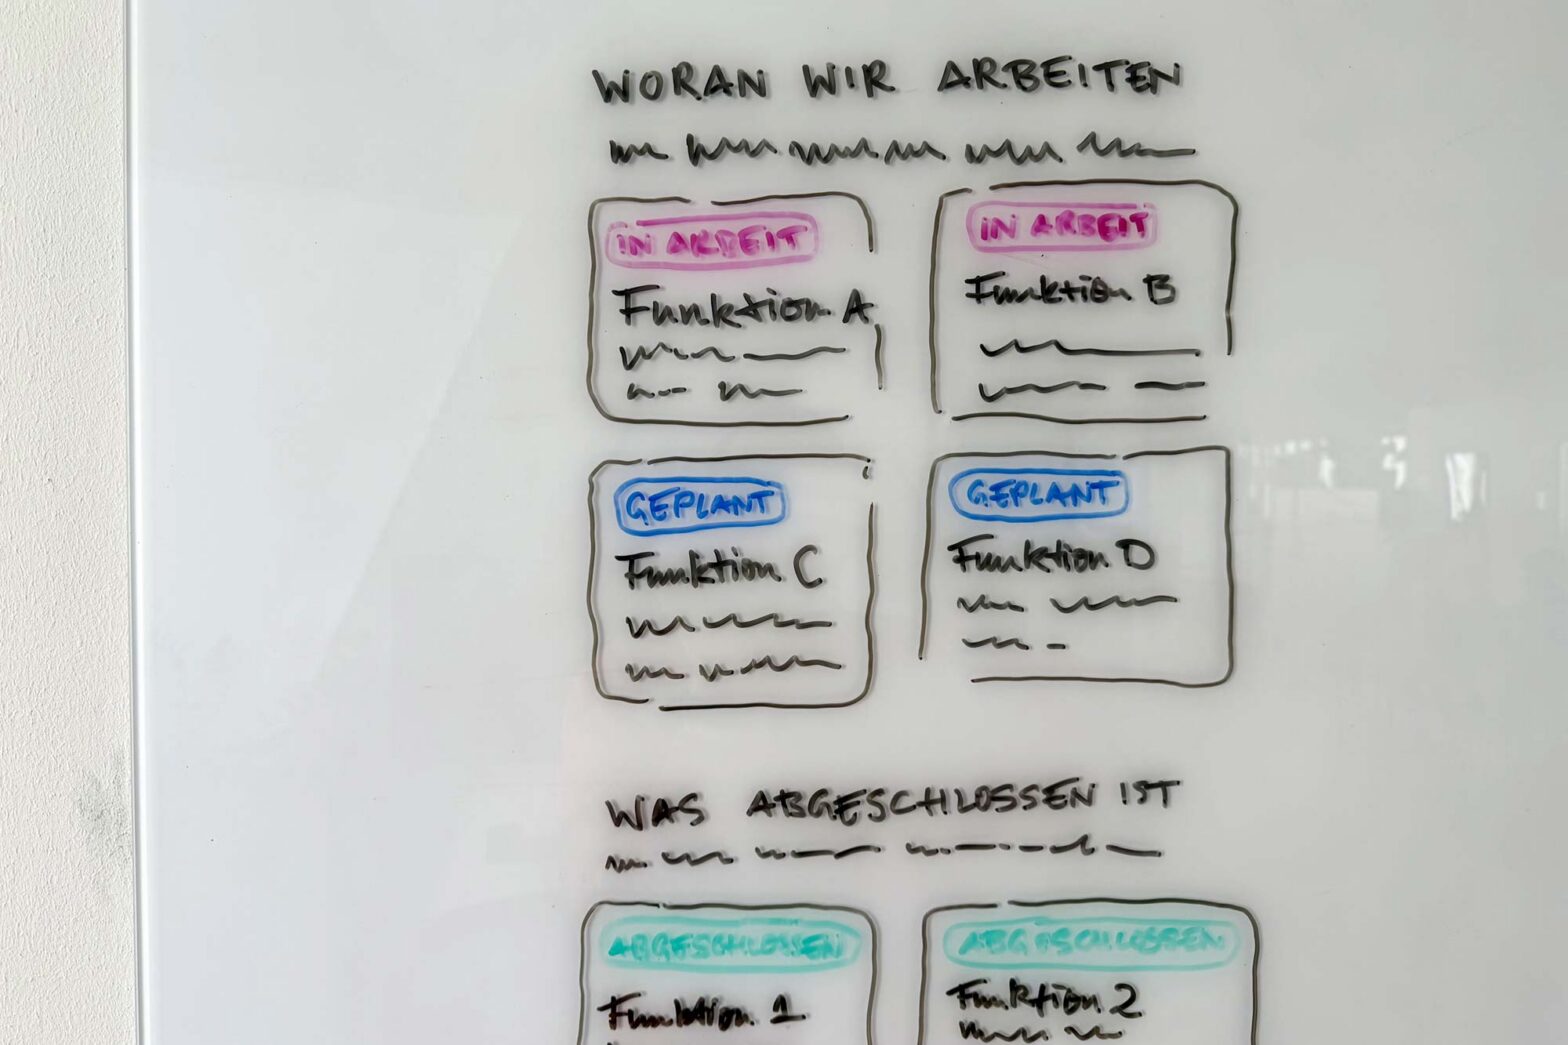 WORAN WIR ARBEITEN
IN ARBEIT
Funktion A
IN ARBEIT
Funktion B
GEPLANT
Funktion C
GEPLANT
Funktion D
WAS ABGESCHLOSSEN IST
ABGESCHLOSSEN
Funktion 1
ABGESCHLOSSEN
Funktion 2